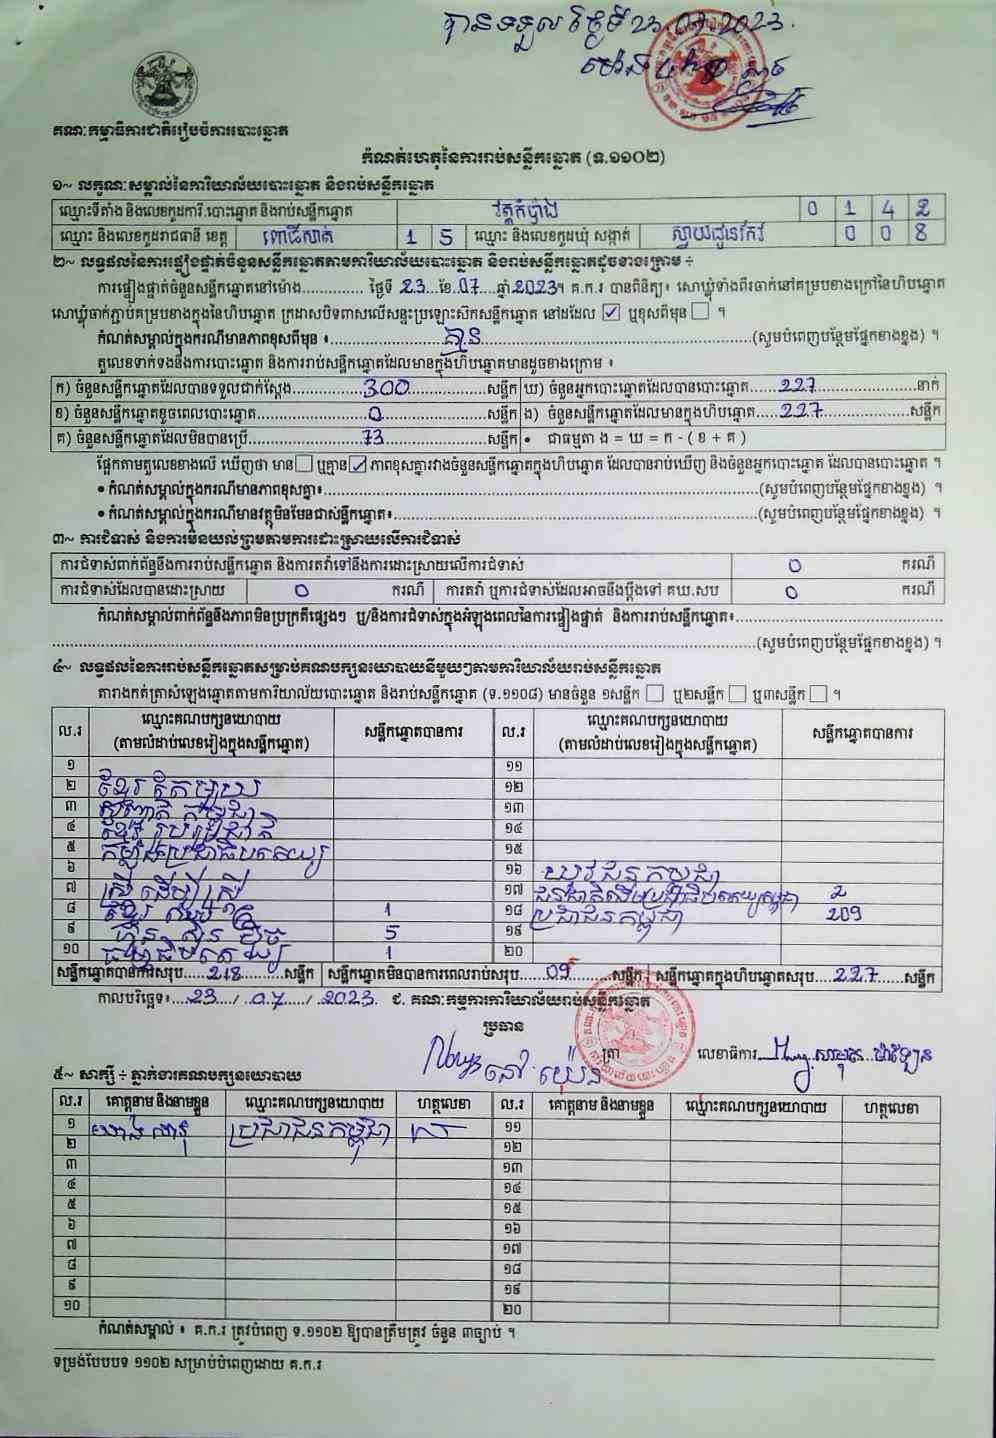 បានទទួល ថ្ងៃទី 23.07.2023.
គណៈកម្មាធិការជាតិរៀបចំការបោះឆ្នោត
កំណត់ហេតុនៃការរាប់សន្លឹកឆ្នោត (ទ.១១០២)
១~ លក្ខណៈសម្គាល់នៃការិយាល័យបោះឆ្នោត និងរាប់សន្លឹកឆ្នោត
ឈ្មោះទីតាំង និងលេខកូដការិ.បោះឆ្នោត និងរាប់សន្លឹកឆ្នោត វត្តកំប៉ាង 0 1 4 2
ឈ្មោះ និងលេខកូដរាជធានី ខេត្ត ពោធិ៍សាត់ 1 5 ឈ្មោះ និងលេខកូដឃុំ សង្កាត់ ស្វាយដូនកែវ 0 0 8
២~ លទ្ធផលនៃការផ្ទៀងផ្ទាត់ចំនួនសន្លឹកឆ្នោតតាមការិយាល័យបោះឆ្នោត និងរាប់សន្លឹកឆ្នោតដូចខាងក្រោម ÷
ការផ្ទៀងផ្ទាត់ចំនួនសន្លឹកឆ្នោតនៅម៉ោង............... ថ្ងៃទី 23 ខែ 07 ឆ្នាំ 2023។ គ.ក.រ បានពិនិត្យ៖ សោឃ្លុំទាំងពីរចាក់នៅគម្របខាងក្រៅនៃហិបឆ្នោត
សោឃ្លុំចាក់ភ្ជាប់គម្របខាងក្នុងនៃហិបឆ្នោត ក្រដាសបិទពាសលើសន្ទះប្រឡោះស៊កសន្លឹកឆ្នោត នៅដដែល ☑ ឬខុសពីមុន ☐ ។
កំណត់សម្គាល់ក្នុងករណីមានភាពខុសពីមុន ៖ គ្មាន (សូមបំពេញបន្ថែមផ្នែកខាងខ្នង) ។
តួលេខទាក់ទងនឹងការបោះឆ្នោត និងការរាប់សន្លឹកឆ្នោតដែលមានក្នុងហិបឆ្នោតមានដូចខាងក្រោម ៖
ក) ចំនួនសន្លឹកឆ្នោតដែលបានទទួលជាក់ស្តែង 300 សន្លឹក ឃ) ចំនួនអ្នកបោះឆ្នោតដែលបានបោះឆ្នោត 227 នាក់
ខ) ចំនួនសន្លឹកឆ្នោតខូចពេលបោះឆ្នោត 0 សន្លឹក ង) ចំនួនសន្លឹកឆ្នោតដែលមានក្នុងហិបឆ្នោត 227 សន្លឹក
គ) ចំនួនសន្លឹកឆ្នោតដែលមិនបានប្រើ 73 សន្លឹក • ជាធម្មតា ង = ឃ = ក - ( ខ + គ )
ផ្អែកតាមតួលេខខាងលើ ឃើញថា មាន ☐ ឬគ្មាន ☑ ភាពខុសគ្នារវាងចំនួនសន្លឹកឆ្នោតក្នុងហិបឆ្នោត ដែលបានរាប់ឃើញ និងចំនួនអ្នកបោះឆ្នោត ដែលបានបោះឆ្នោត ។
• កំណត់សម្គាល់ក្នុងករណីមានភាពខុសគ្នា៖ (សូមបំពេញបន្ថែមផ្នែកខាងខ្នង) ។
• កំណត់សម្គាល់ក្នុងករណីមានវត្ថុមិនមែនជាសន្លឹកឆ្នោត៖ (សូមបំពេញបន្ថែមផ្នែកខាងខ្នង) ។
៣~ ការជំទាស់ និងការមិនយល់ព្រមតាមការដោះស្រាយលើការជំទាស់
ការជំទាស់ពាក់ព័ន្ធនឹងការរាប់សន្លឹកឆ្នោត និងការតវ៉ាទៅនឹងការដោះស្រាយលើការជំទាស់ 0 ករណី
ការជំទាស់ដែលបានដោះស្រាយ 0 ករណី ការតវ៉ា ឬការជំទាស់ដែលអាចនឹងប្តឹងទៅ គឃ.សប 0 ករណី
កំណត់សម្គាល់ពាក់ព័ន្ធនឹងភាពមិនប្រក្រតីផ្សេងៗ ឬ/និងការជំទាស់ក្នុងអំឡុងពេលនៃការផ្ទៀងផ្ទាត់ និងការរាប់សន្លឹកឆ្នោត៖
(សូមបំពេញបន្ថែមផ្នែកខាងខ្នង) ។
៤~ លទ្ធផលនៃការរាប់សន្លឹកឆ្នោតសម្រាប់គណបក្សនយោបាយនីមួយៗតាមការិយាល័យរាប់សន្លឹកឆ្នោត
តារាងកត់ត្រាសំឡេងឆ្នោតតាមការិយាល័យបោះឆ្នោត និងរាប់សន្លឹកឆ្នោត (ទ.១១០៨) មានចំនួន ១សន្លឹក ☐ ឬ២សន្លឹក ☐ ឬ៣សន្លឹក ☐ ។
ល.រ ឈ្មោះគណបក្សនយោបាយ (តាមលំដាប់លេខរៀងក្នុងសន្លឹកឆ្នោត) សន្លឹកឆ្នោតបានការ ល.រ ឈ្មោះគណបក្សនយោបាយ (តាមលំដាប់លេខរៀងក្នុងសន្លឹកឆ្នោត) សន្លឹកឆ្នោតបានការ
១ ១១
២ ខ្មែរតែមួយ ១២
៣ កម្ពុជា ១៣
៤ ខ្មែររួបរួមជាតិ ១៤
៥ កម្លាំងប្រជាធិបតេយ្យ ១៥
៦ ១៦ យុវជនកម្ពុជា
៧ ស្រ្តីដើម្បីស្រ្តី ១៧ ជនជាតិដើមប្រជាធិបតេយ្យកម្ពុជា 2
៨ ខ្មែរ 1 ១៨ ប្រជាជនកម្ពុជា 209
៩ ហ្វ៊ុនស៊ិនប៉ិច 5 ១៩
១០ ធម្មាធិបតេយ្យ 1 ២០
សន្លឹកឆ្នោតបានការសរុប 218 សន្លឹក សន្លឹកឆ្នោតមិនបានការពេលរាប់សរុប 09 សន្លឹក សន្លឹកឆ្នោតក្នុងហិបឆ្នោតសរុប 227 សន្លឹក
កាលបរិច្ឆេទ៖ 23 / 07 / 2023 ជ. គណៈកម្មការការិយាល័យរាប់សន្លឹកឆ្នោត
ប្រធាន
ត្រា លេខាធិការ
៥~ សាក្សី ÷ ភ្នាក់ងារគណបក្សនយោបាយ
ល.រ គោត្តនាម និងនាមខ្លួន ឈ្មោះគណបក្សនយោបាយ ហត្ថលេខា ល.រ គោត្តនាម និងនាមខ្លួន ឈ្មោះគណបក្សនយោបាយ ហត្ថលេខា
១ ប្រជាជនកម្ពុជា ១១
២ ១២
៣ ១៣
៤ ១៤
៥ ១៥
៦ ១៦
៧ ១៧
៨ ១៨
៩ ១៩
១០ ២០
កំណត់សម្គាល់ ៖ គ.ក.រ ត្រូវបំពេញ ទ.១១០២ ឱ្យបានត្រឹមត្រូវ ចំនួន ៣ច្បាប់ ។
ទម្រង់បែបបទ ១១០២ សម្រាប់បំពេញដោយ គ.ក.រ